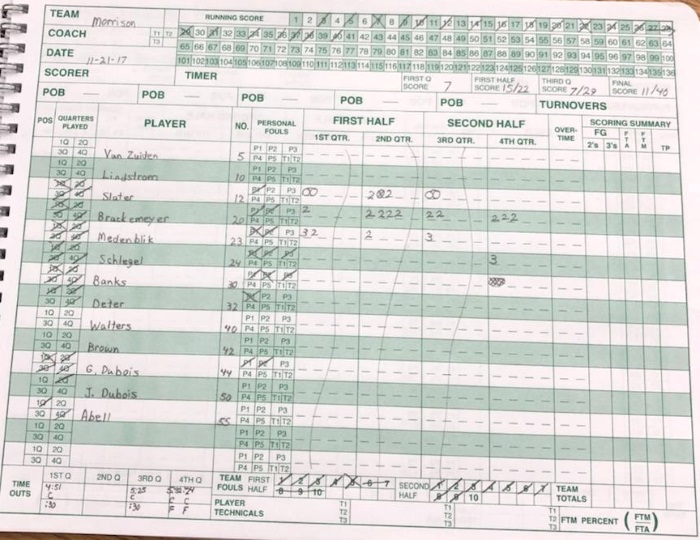 TEAM Morrison
RUNNING SCORE 1 2 3 4 5 6 7 8 9 10 11 12 13 14 15 16 17 18 19 20 21 22 23 24 25 26 27 28
COACH T1 T2 29 30 31 32 33 34 35 36 37 38 39 40 41 42 43 44 45 46 47 48 49 50 51 52 53 54 55 56 57 58 59 60 61 62 63 64
T3
DATE 11-21-17 65 66 67 68 69 70 71 72 73 74 75 76 77 78 79 80 81 82 83 84 85 86 87 88 89 90 91 92 93 94 95 96 97 98 99 100
101 102 103 104 105 106 107 108 109 110 111 112 113 114 115 116 117 118 119 120 121 122 123 124 125 126 127 128 129 130 131 132 133 134 135 136
SCORER TIMER FIRST Q SCORE 7 FIRST HALF SCORE 15/22 THIRD Q SCORE 7/29 FINAL SCORE 11/40
POB POB POB POB POB TURNOVERS
POS QUARTERS PLAYED PLAYER NO. PERSONAL FOULS FIRST HALF SECOND HALF OVER-TIME SCORING SUMMARY
1ST QTR. 2ND QTR. 3RD QTR. 4TH QTR. FG 2's 3's FTA FTM TP
1Q 2Q P1 P2 P3
3Q 4Q Van Zuiden 5 P4 P5 T1 T2
1Q 2Q P1 P2 P3
3Q 4Q Lindstrom 10 P4 P5 T1 T2
1Q 2Q P1 P2 P3
3Q 4Q Slater 12 P4 P5 T1 T2
1Q 2Q P1 P2 P3 2 2222 22 222
3Q 4Q Brackemeyer 20 P4 P5 T1 T2
1Q 2Q P1 P2 P3 32 2 3
3Q 4Q Medenblik 23 P4 P5 T1 T2
1Q 2Q P1 P2 P3 3
3Q 4Q Schlegel 24 P4 P5 T1 T2
1Q 2Q P1 P2 P3
3Q 4Q Banks 30 P4 P5 T1 T2
1Q 2Q P1 P2 P3
3Q 4Q Deter 32 P4 P5 T1 T2
1Q 2Q P1 P2 P3
3Q 4Q Walters 40 P4 P5 T1 T2
1Q 2Q P1 P2 P3
3Q 4Q Brown 42 P4 P5 T1 T2
1Q 2Q P1 P2 P3
3Q 4Q G. Dubois 44 P4 P5 T1 T2
1Q 2Q P1 P2 P3
3Q 4Q J. Dubois 50 P4 P5 T1 T2
1Q 2Q P1 P2 P3
3Q 4Q Abell 55 P4 P5 T1 T2
1Q 2Q P1 P2 P3
3Q 4Q P4 P5 T1 T2
1Q 2Q P1 P2 P3
3Q 4Q P4 P5 T1 T2
TIME OUTS 1ST Q 2ND Q 3RD Q 4TH Q TEAM FOULS FIRST HALF 1 2 3 4 5 6 7 8 9 10 SECOND HALF 1 2 3 4 5 6 7 8 9 10 TEAM TOTALS
4:51 5:25
C C C C
:30 :30 F F
PLAYER TECHNICALS T1 T2 T3 T1 T2 T3 T1 T2 T3 FTM PERCENT (FTM/FTA)